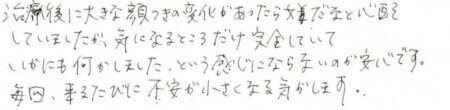 治療後に大きな顔つきの変化があったら嫌だなと心配を
していましたが、気になるところだけ完全していて
いかにも何かしました、という感じにならないのが安心です。
毎回、来るたびに不安が小さくなる気がします.